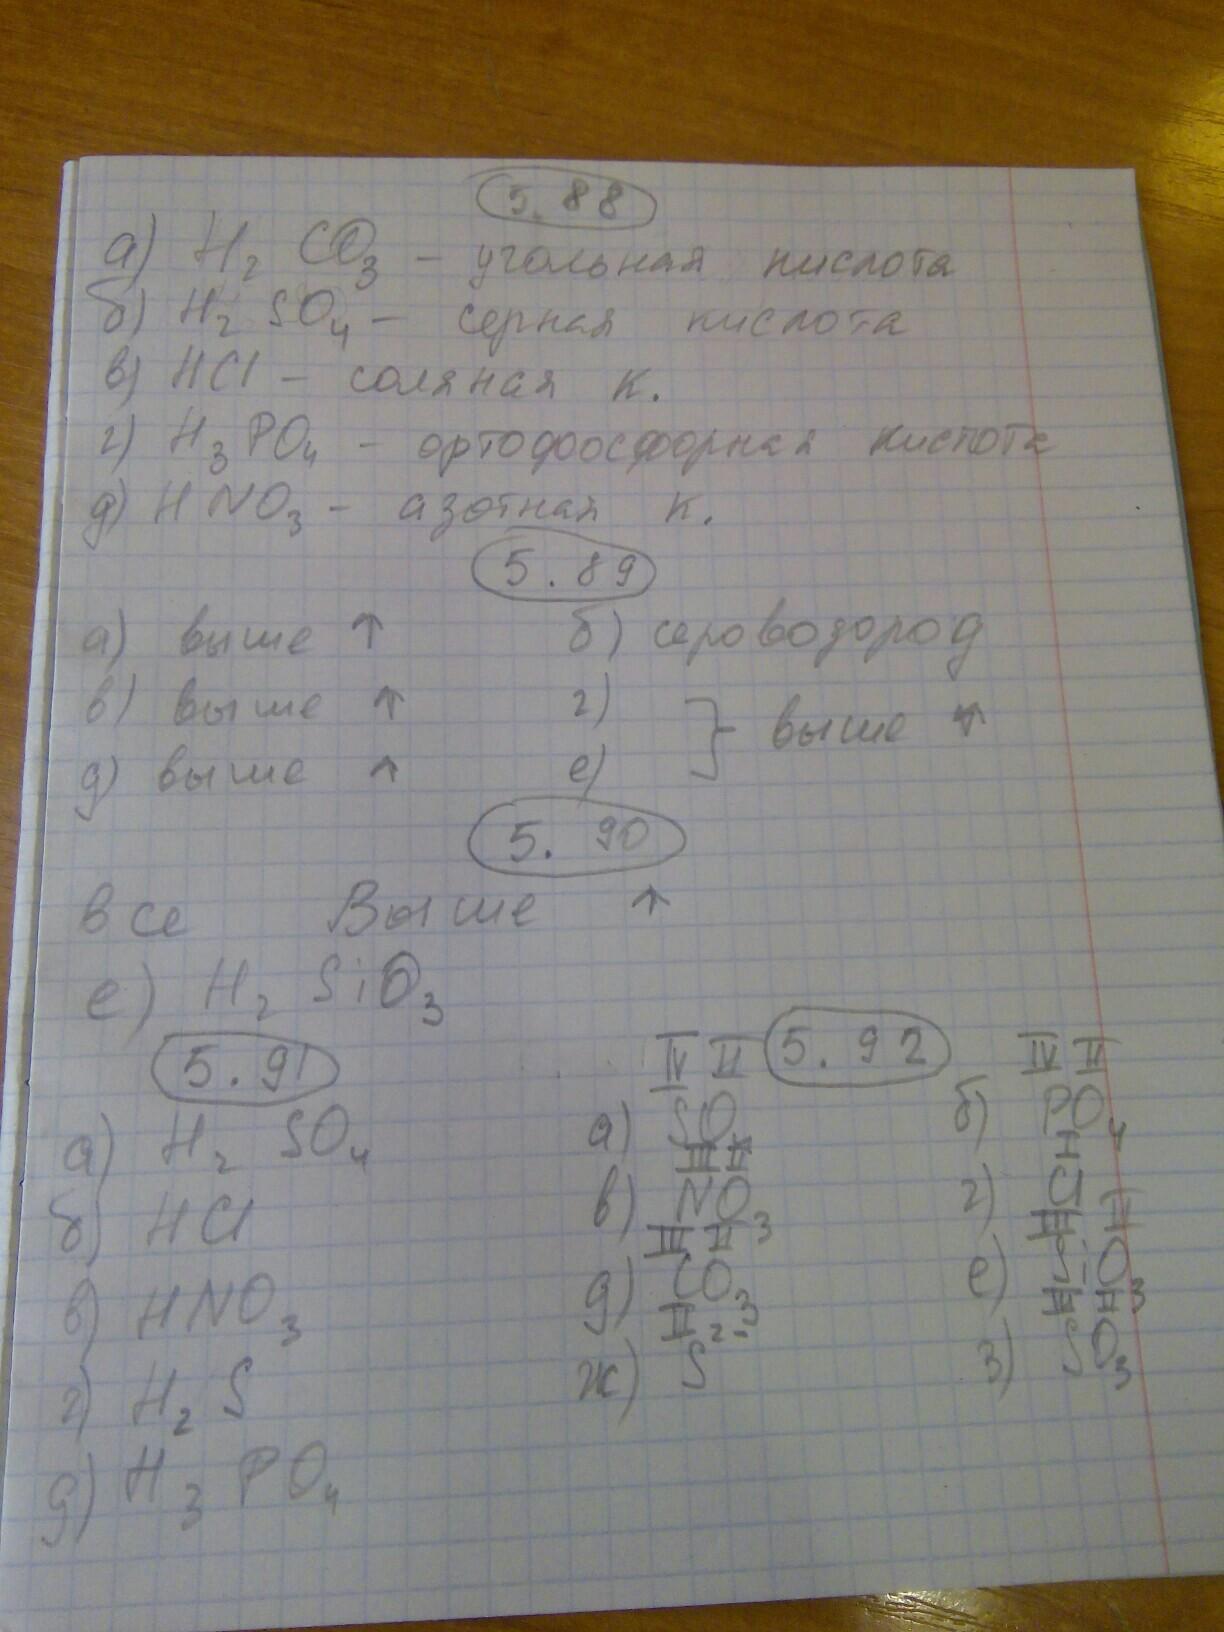 5.88
а) H₂CO₃ - угольная кислота
б) H₂SO₄ - серная кислота
в) HCl - соляная к.
г) H₃PO₄ - ортофосфорная кислота
д) HNO₃ - азотная к.
5.89
а) выше ↑ б) сероводород
в) выше ↑ г)
} выше ↑
д) выше ↑ е)
5.90
все Выше ↑
е) H₂SiO₃
5.91
а) H₂SO₄
б) HCl
в) HNO₃
г) H₂S
д) H₃PO₄
5.92
IV II
а) SO
IV II
б) PO₄
III II
в) NO₃
I
г) Cl
II II
д) CO₃
е) Si O₃
II 2-
ж) S
з) SO₃